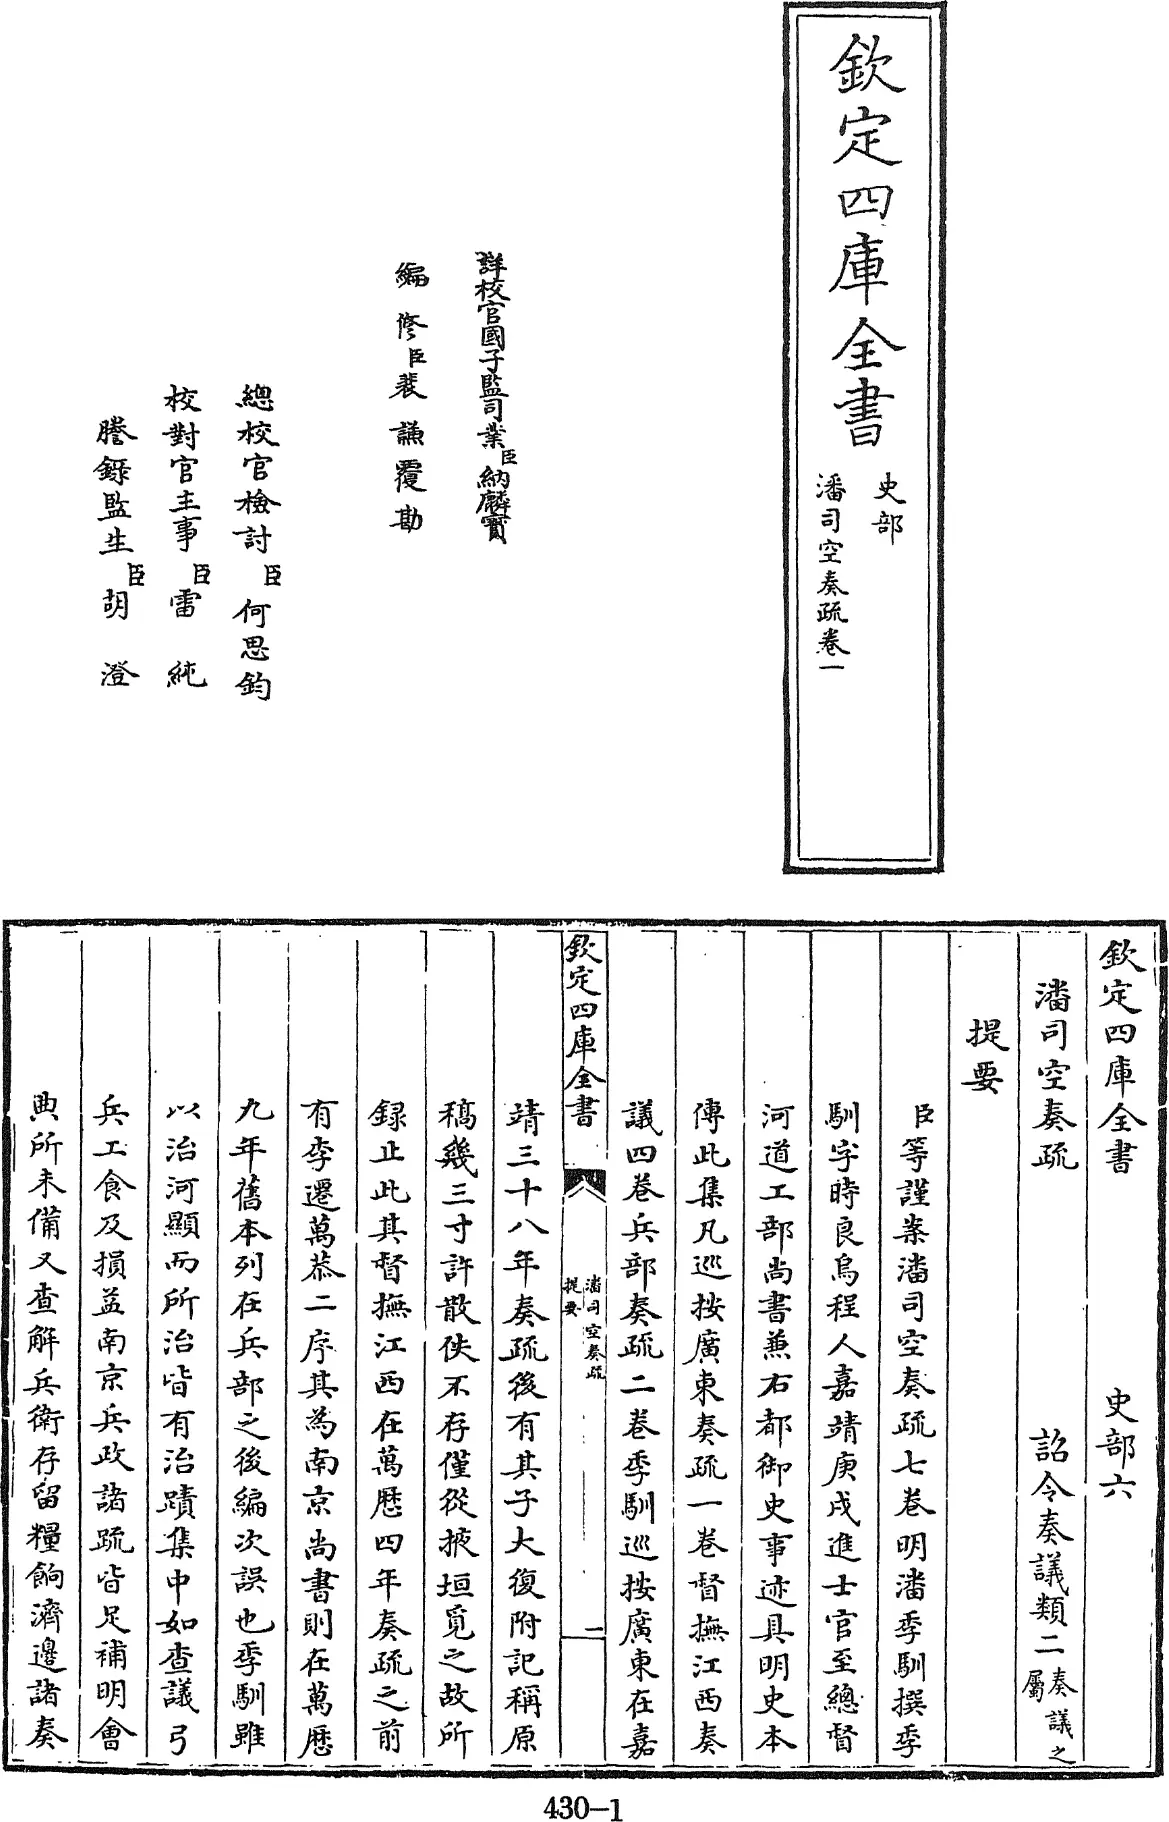 欽定四庫全書
史部
潘司空奏疏卷一
詳校官國子監司業臣納麟寳
編修臣裴謙覆勘
總校官檢討臣何思鈞
校對官主事臣雷純
謄録監生臣胡澄
欽定四庫全書 史部六
潘司空奏疏 詔令奏議類二奏議之屬
提要
臣等謹案潘司空奏疏七卷明潘季馴撰季
馴字時良烏程人嘉靖庚戌進士官至總督
河道工部尚書兼右都御史事迹具明史本
傳此集凡巡按廣東奏疏一卷督撫江西奏
議四卷兵部奏疏二卷季馴巡按廣東在嘉
欽定四庫全書
潘司空奏疏
提要
一
靖三十八年奏疏後有其子大復附記稱原
稿幾三寸許散佚不存僅從掖垣覓之故所
録止此其督撫江西在萬厯四年奏疏之前
有李遷萬恭二序其為南京尚書則在萬厯
九年舊本列在兵部之後編次誤也季馴雖
以治河顯而所治皆有治蹟集中如查議弓
兵工食及損益南京兵政諸疏皆足補明會
典所未備又查解兵衛存留糧餉濟邊諸奏
430-1